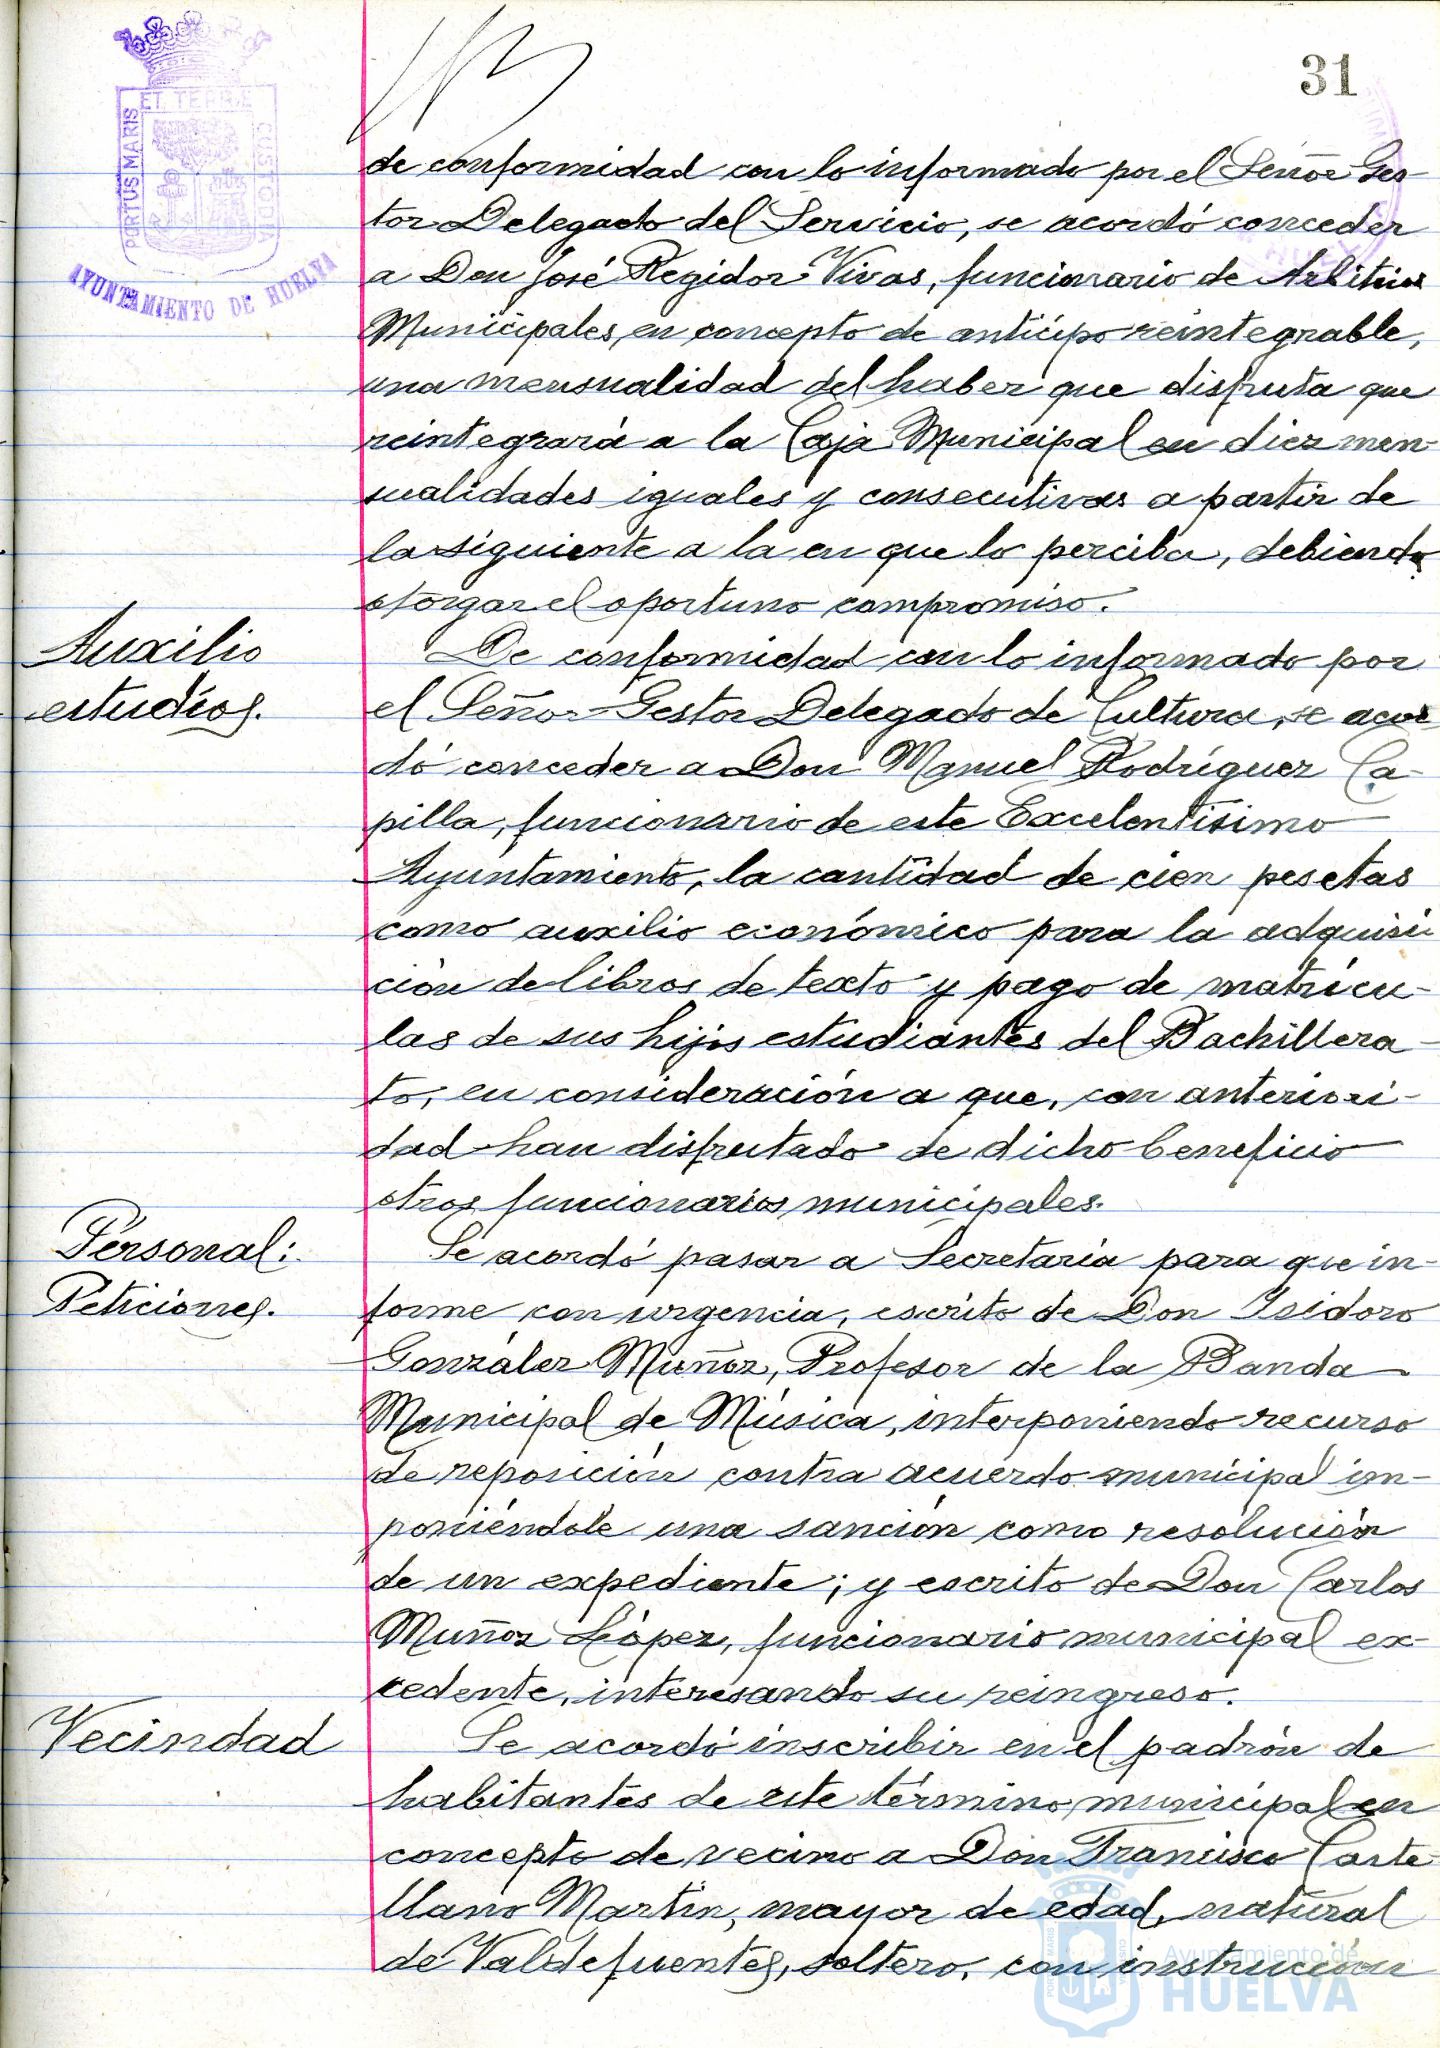 31
PORTUS MARIS ET TERRE CUSTODIA
AYUNTAMIENTO DE HUELVA
de conformidad con lo informado por el Señor Ges-
tor Delegado del Servicio, se acordó conceder
a Don José Regidor Vivas, funcionario de Arbitrios
Municipales, en concepto de anticipo reintegrable,
una mensualidad del haber que disfruta que
reintegrará a la Caja Municipal en diez men-
sualidades iguales y consecutivas a partir de
la siguiente a la en que lo perciba, debiendo
otorgar el oportuno compromiso.
Auxilio
estudios.
De conformidad con lo informado por
el Señor Gestor Delegado de Cultura, se acor-
dó conceder a Don Manuel Rodríguez Ca-
pilla, funcionario de este Excelentísimo
Ayuntamiento, la cantidad de cien pesetas
como auxilio económico para la adquisi-
ción de libros de texto y pago de matrícu-
las de sus hijos estudiantes del Bachillera-
to, en consideración a que, con anteriori-
dad han disfrutado de dicho beneficio
otros funcionarios municipales.
Personal:
Peticiones.
Se acordó pasar a Secretaría para que in-
forme con urgencia, escrito de Don Isidoro
González Muñoz, Profesor de la Banda
Municipal de Música, interponiendo recurso
de reposición contra acuerdo municipal im-
poniéndole una sanción como resolución
de un expediente; y escrito de Don Carlos
Muñoz López, funcionario municipal ex-
cedente, interesando su reingreso.
Vecindad
Se acordó inscribir en el padrón de
habitantes de este término municipal en
concepto de vecino a Don Francisco Caste
llano Martín, mayor de edad, natural
de Valdefuentes, soltero, con instrucción
Ayuntamiento de
HUELVA